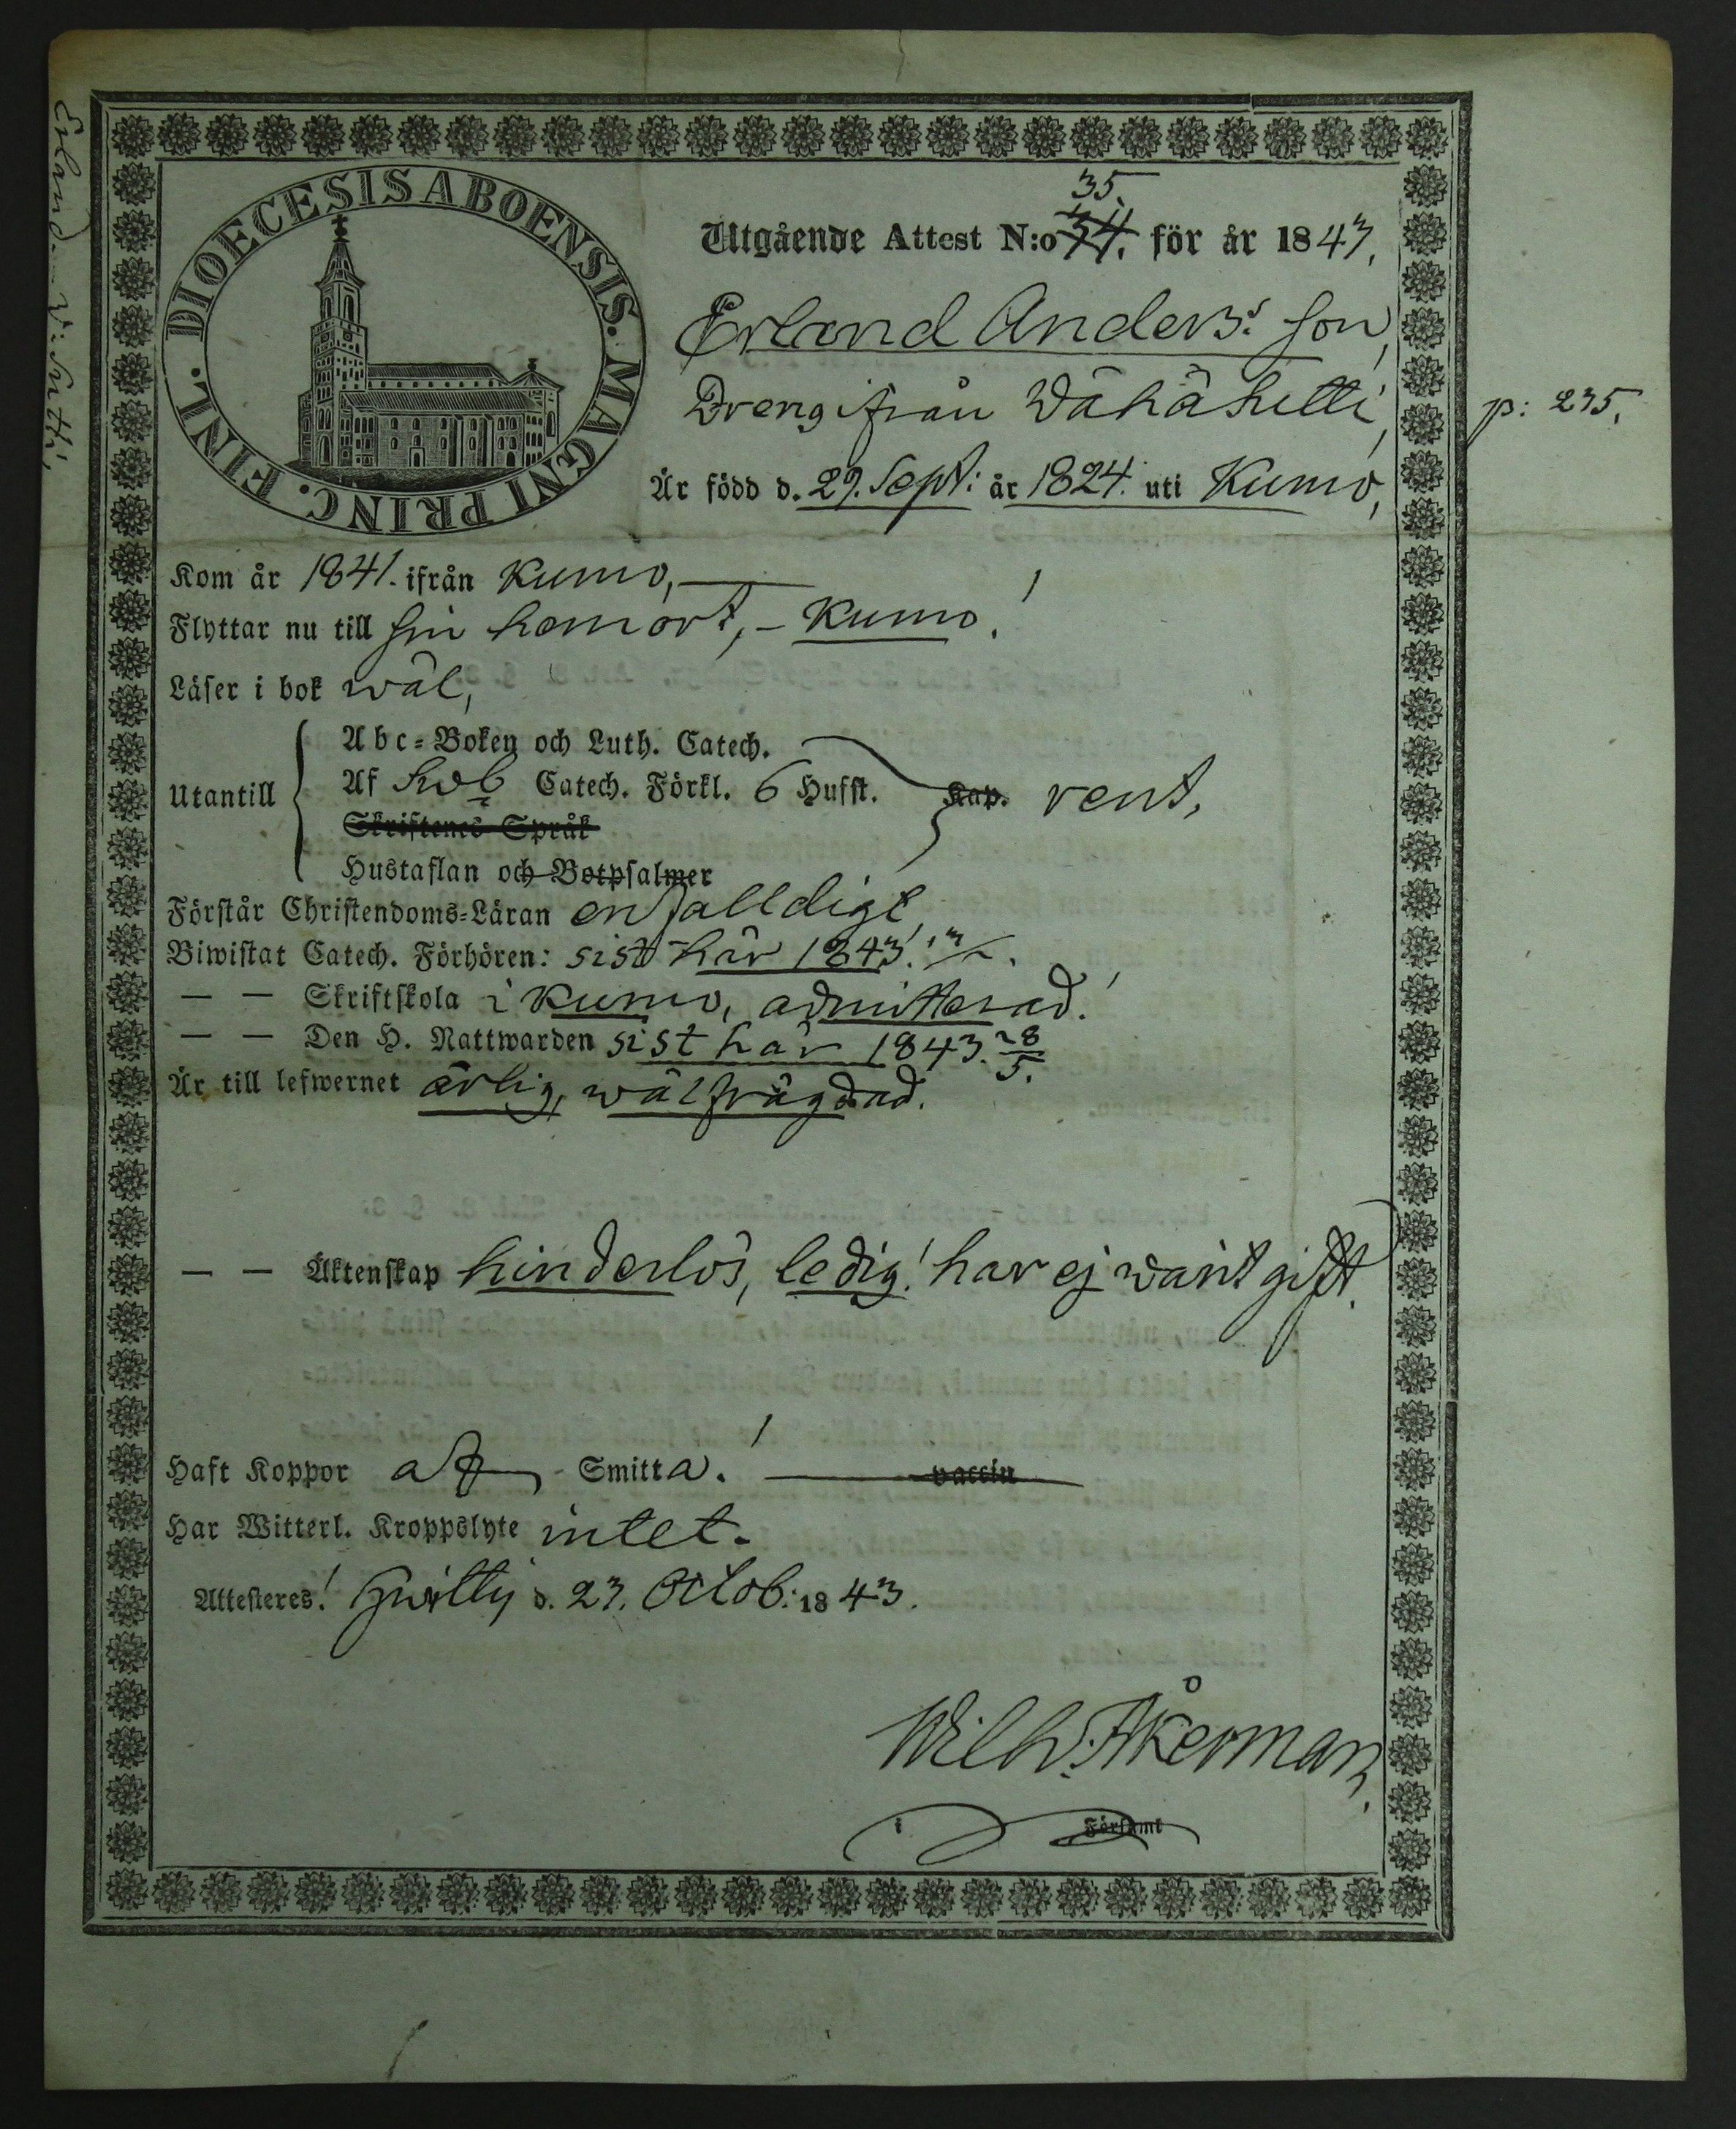 DIOECESIS ABOENSIS. MAGNI PRINC. FINL.
35.
Utgående Attest N:o 34. för år 1843.
Erland Anders: son,
Dreng ifrån Wähähutti, p: 235.
Är född d. 29. Sept: år 1824. uti Kumo,
Kom år 1841. ifrån Kumo,
Flyttar nu till sin hemort, - Kumo!
Läser i bok wäl,
Abc-Boken och Luth. Catech.
Utantill Af Sweb Catech. Förkl. 6 Hufst. Kap. rent,
Skriftenes Språk
Hustaflan och Botpsalmer
Förstår Christendoms-Läran enfalldigt
Biwistat Catech. Förhören: sist här 1843.
— — Skriftskola i Kumo, admitterad!
— — Den H. Nattwarden sist här 1843. 28/5.
Är till lefwernet ärlig, wälfrägdad.
— — Äktenskap hinderlös, ledig! har ej warit gift.
Haft Koppor af Smitta! vaccin
Har Witterl. Kroppslyte intet.
Attesteres! Hwitty d. 23. Octob: 1843.
Wilh: Åkerman,
i Förssamt
Erland